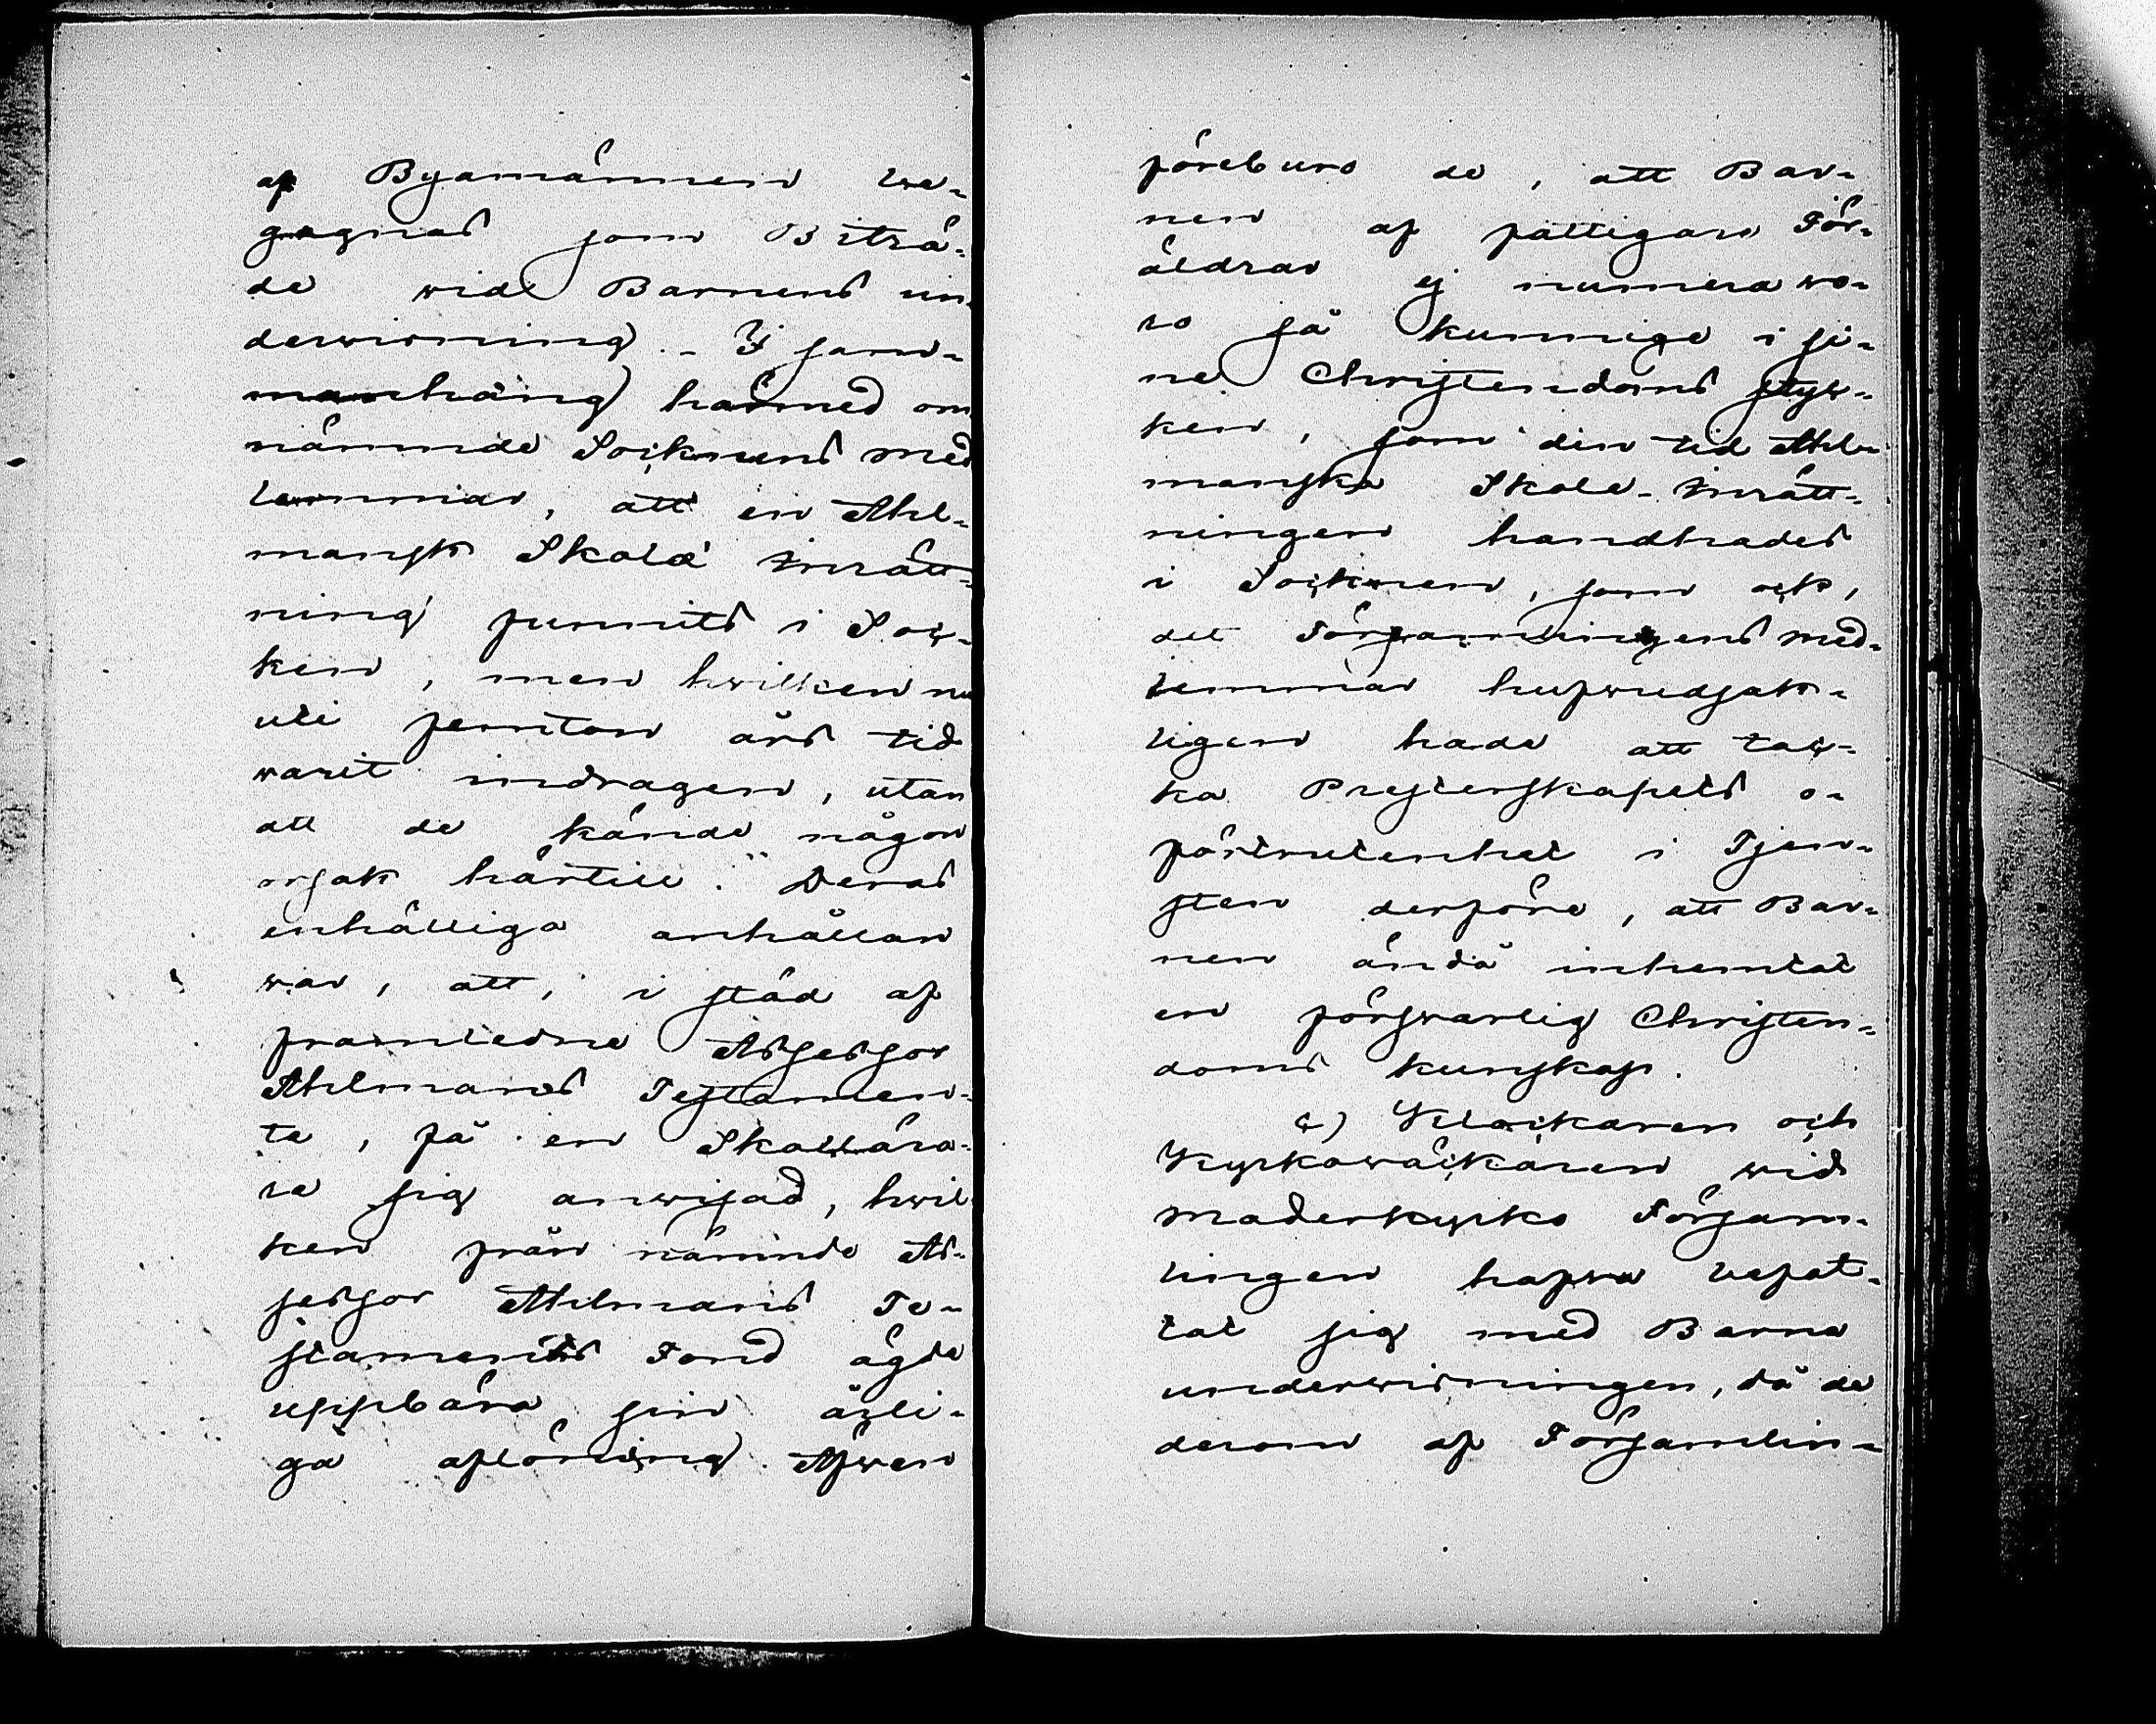 af Byamännen be-
gagnas som Biträ-
de wid Barnens un-
derwisning. - I sam-
manhang härmed om
nämnde Socknens med
lemmar, att en Ahl-
mansk Skola Inrätt-
ning funnits i Soc-
ken, men hwilken nu
uti femton års tid
warit indragen, utan
att de kände någon
orsak härtill. Deras
enhälliga anhållan
war, att, i städ af
framledne Assessor
Ahlmans Testamen-
te, få en Skollära-
re sig anwisad, hwil
ken från nämnde As-
sessor Ahlmans Te-
staments Fond ägde
uppbära sin årli-
ga aflöning. Äfwen
föreburo de, att Bar-
nen af fattigare För-
äldrar ej numera wo-
ro så kunnige i si-
ne Christendoms styc-
ken, som den tid Ahl-
manska Skole-Inrätt-
ningen handhades
i Socknen, som ock,
det Församlingens med-
lemmar hufwudsak-
ligen hade att tac-
ka Presterskapets o-
förtrutenhet i Tjen-
sten derföre, att Bar-
nen ändå inhemtat
en förswarlig Christen-
doms kunskap.
c) Klockaren och
Kyrkowäcktaren wid
moderkyrko Försam-
lingen hafwa befat-
tat sig med Barna
underwisningen, då de
derom af Församlin-